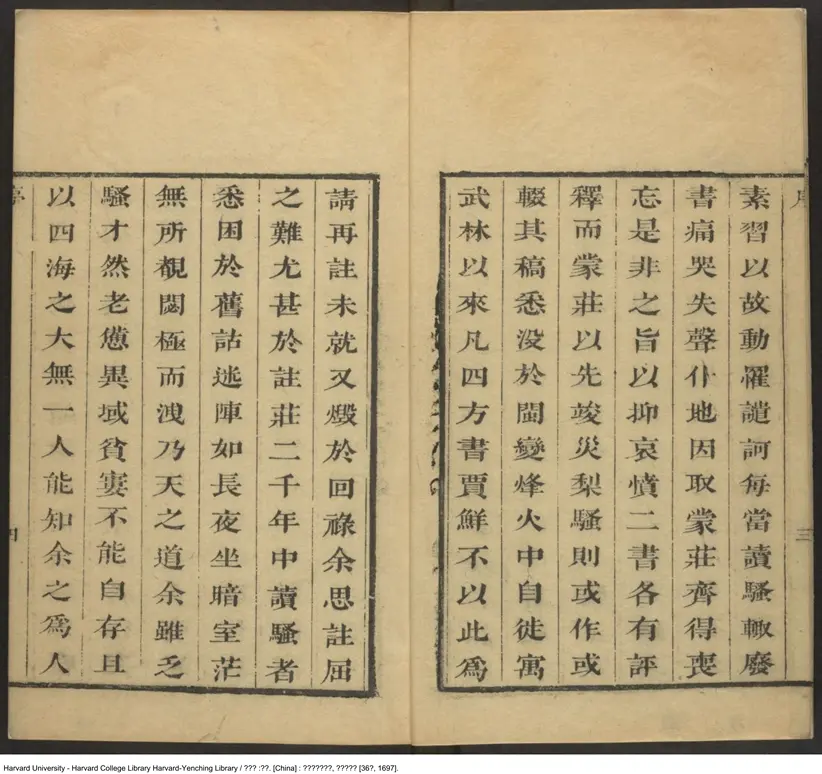 序
三
素習以故動罹謔訶每當讀騷輙廢
書痛哭失聲仆地因取蒙莊齊得喪
忘是非之旨以抑哀憤二書各有評
釋而蒙莊以先竣災梨騷則或作或
輟其稿悉没於閩變烽火中自徙寓
武林以來凡四方書賈鮮不以此爲
請再註未就又燬於回祿余思註屈
之難尤甚於註莊二千年中讀騷者
悉困於舊詁迷陣如長夜坐暗室茫
無所覩閟極而洩乃天之道余雖乏
騷才然老憊異域貧窶不能自存且
以四海之大無一人能知余之爲人
序
四
Harvard University - Harvard College Library Harvard-Yenching Library / ??? :??. [China] : ???????, ????? [36?, 1697].